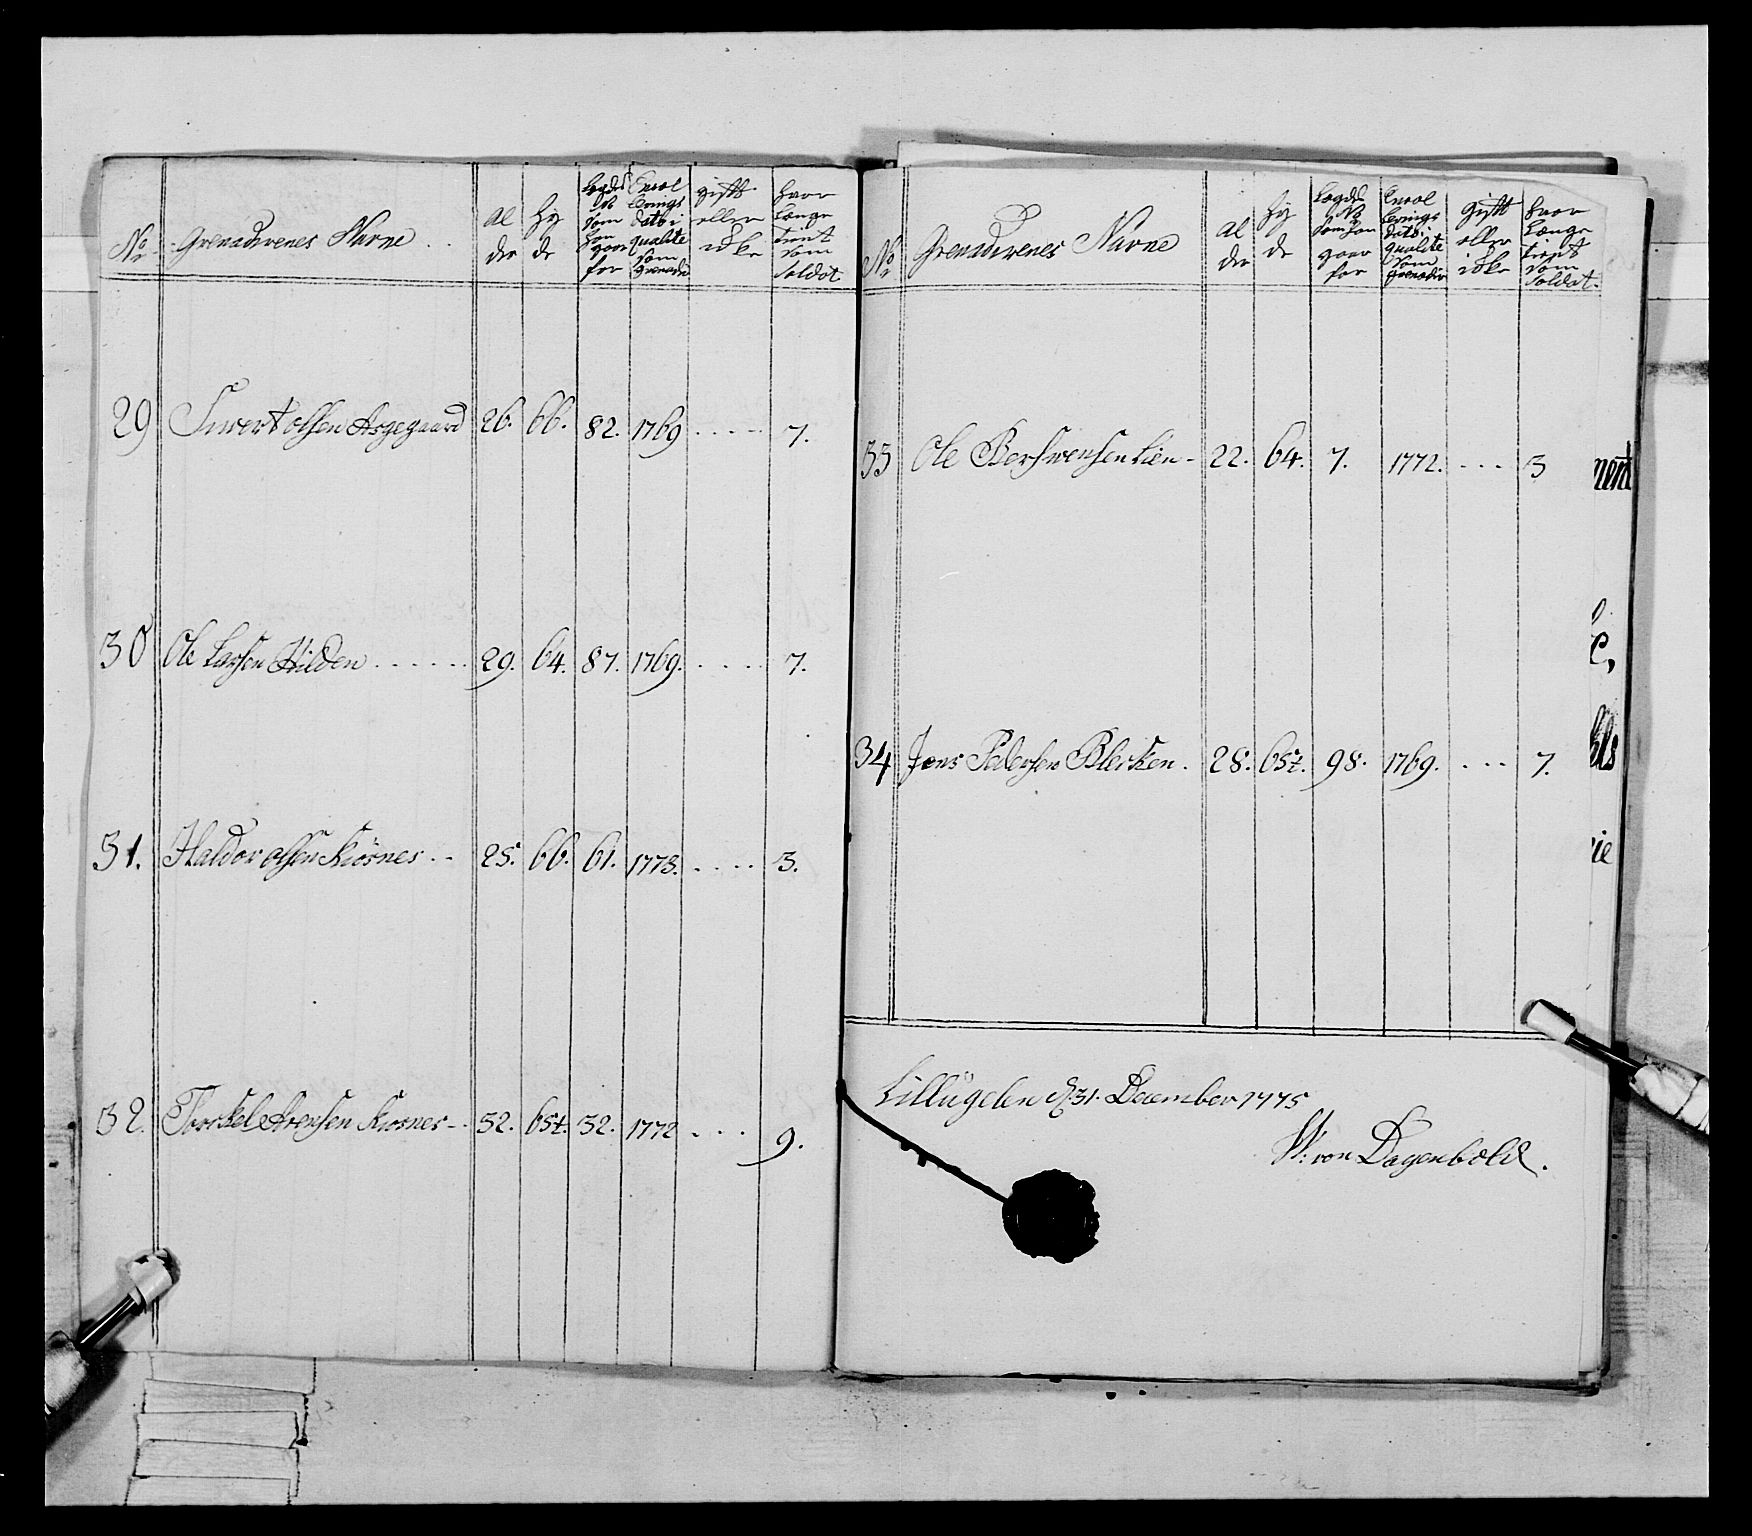 No
Grenaderenes Navne
al
der
Hÿ
de
Legds
No
som
han
gaar
for
Enrol
lerings
Dato i
qualite
som
grenader
gift
eller
icke
hvor
længe
tient
som
soldat
29 Siwert olsen Aspegaard 26. 66. 82. 1769 ..... 7.
30 Ole Larsen Hilden ...... 29. 64. 87. 1769. .... 7.
31. Haldor olsen Kiørnes .. 25. 66. 61. 1773. .... 3.
32. Torckel Arensen Kiørnes -. 32. 65½. 32. 1772 .... 9.
No
Grenaderenes Navne
al
der
hÿ
de
Legds
No
som han
gaar
for
Enrol
lerings
Dato i
qualite
som
grenader
Gift
eller
icke
hvor
længe
tient
som
soldat.
33 Ole Berswensen Lien - 22. 64. 7. 1772. ... 3
34 Jens Pedersen Blecken. 28. 65½. 98. 1769. ... 7.
Lillügden d 31. December 1775
W: von Dagenbold.